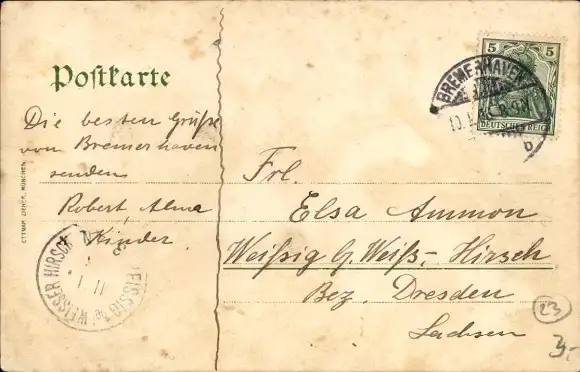 Postkarte
Die besten Grüße
von Bremerhaven
senden
Robert, Alma
Kinder.
OTTMAR ZIEHER, MÜNCHEN.
WEISSIG b. WEISSER HIRSCH
11 1
5 5
DEUTSCHES REICH
BREMERHAVEN
10.
b
Frl.
Elsa Ammon
Weißig b/ Weiß. Hirsch
Bez. Dresden
Sachsen
23
3,-